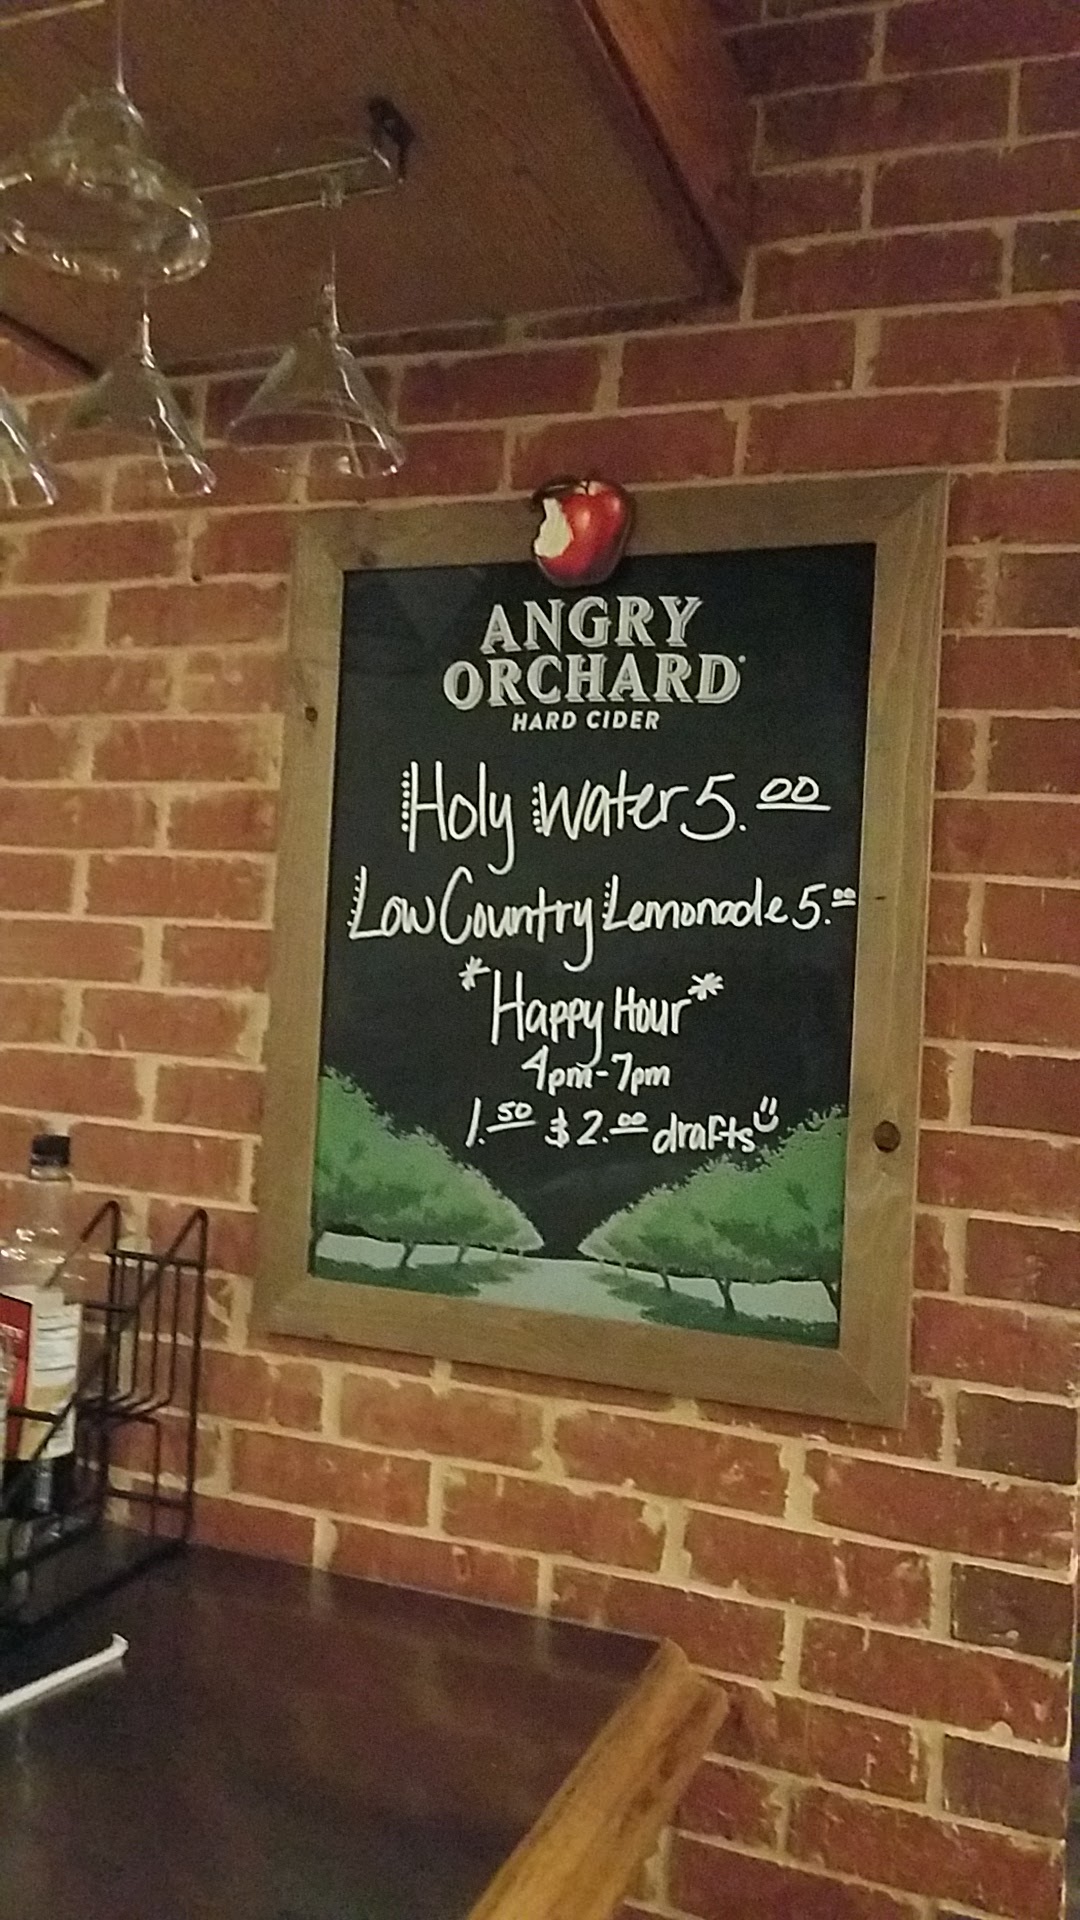 ANGRY
ORCHARD
HARD CIDER
Holy Water 5.00
Low Country Lemonade 5.00
*Happy Hour*
4pm-7pm
1.50 $2.00 drafts